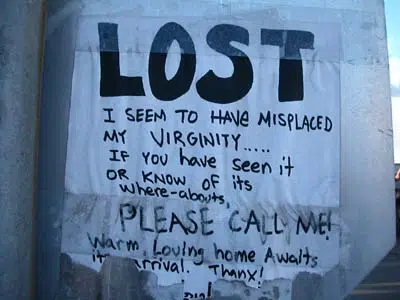 LOST
I SEEM TO HAVE MISPLACED
MY VIRGINITY.....
IF YOU HAVE SEEN it
OR KNOW OF its
where-abouts,
PLEASE CALL ME!
Warm, Loving home Awaits
arrival. Thanx!